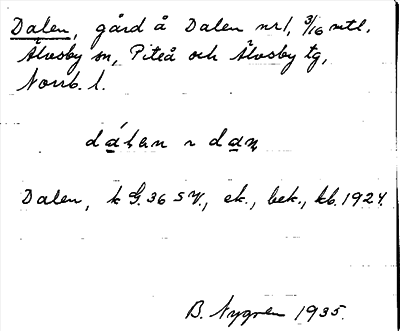 Dalen, gård å Dalen nr1, 3/16 mtl,
Älvsby sn, Piteå och Älvsby tg,
Norrb. l.
dálan ~ dan
Dalen, k G.36 SV., ek., bek., kb. 1924.
B. Nygren 1935.